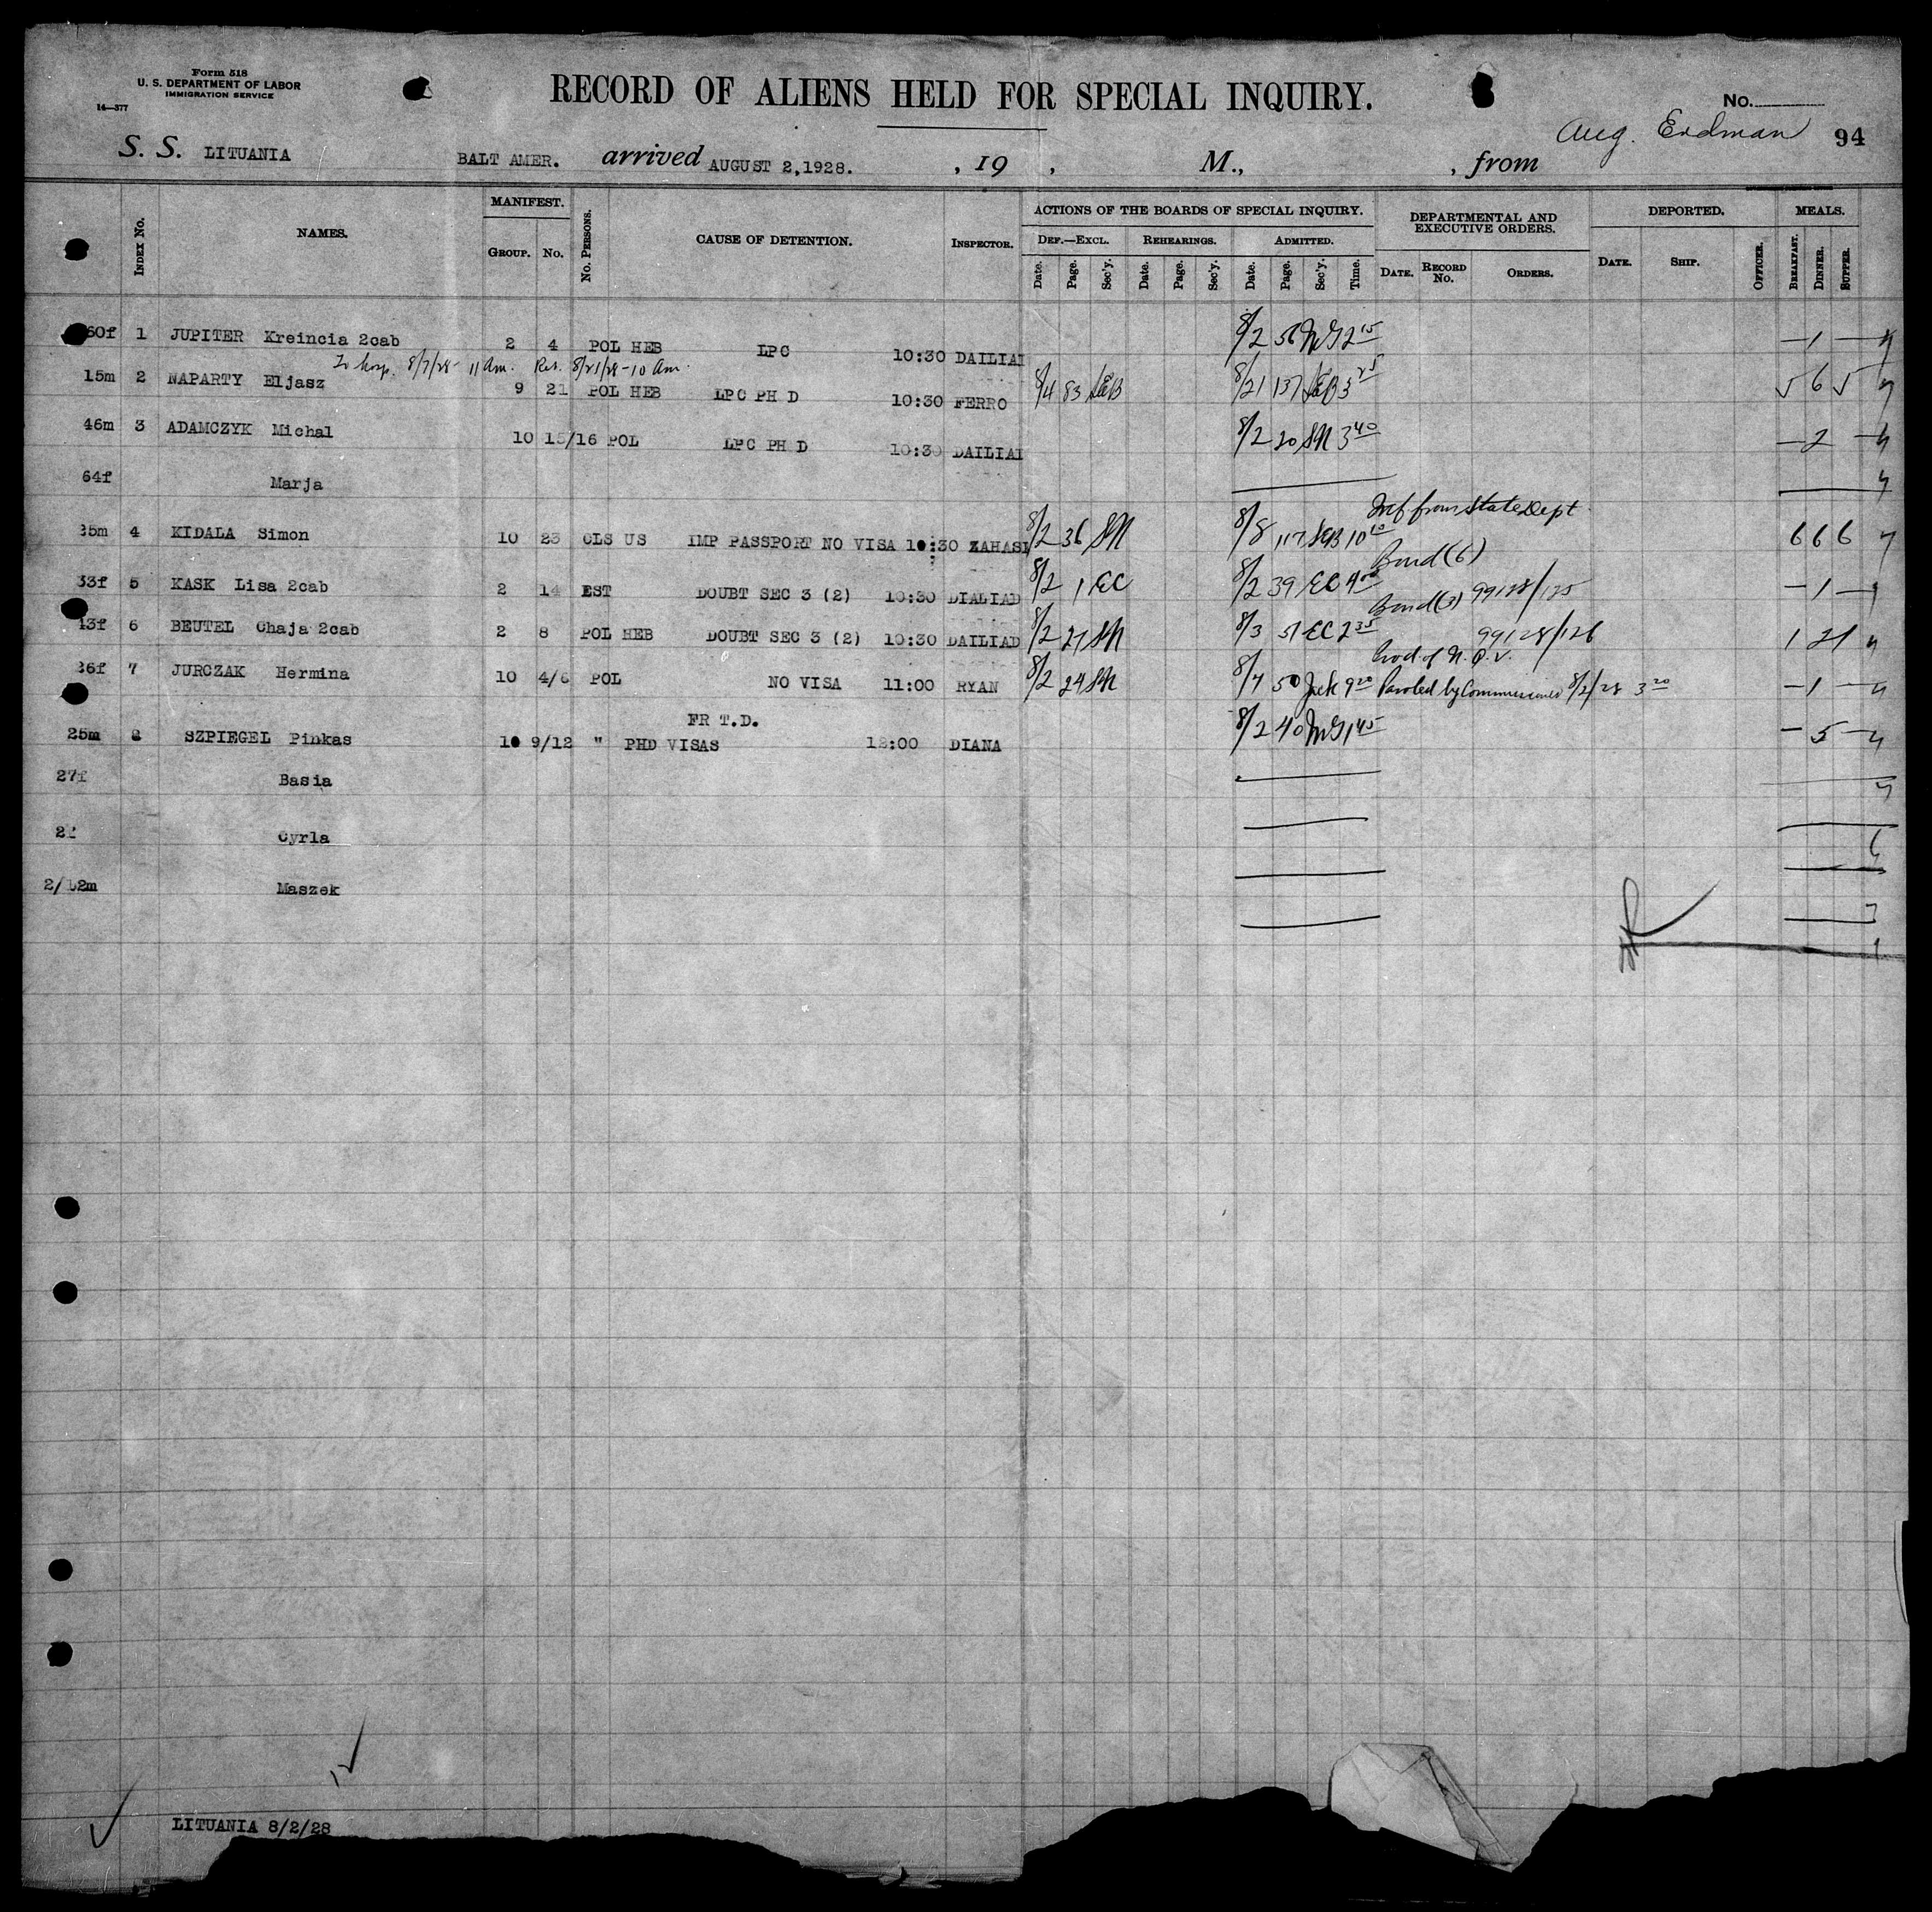 Form 518
U. S. DEPARTMENT OF LABOR
IMMIGRATION SERVICE
14—377
RECORD OF ALIENS HELD FOR SPECIAL INQUIRY.
No.
Aug. Erdman 94
S. S. LITUANIA BALT AMER. arrived AUGUST 2,1928. , 19 , M., , from
INDEX No. NAMES. MANIFEST. GROUP. No. No. PERSONS. CAUSE OF DETENTION. INSPECTOR.
ACTIONS OF THE BOARDS OF SPECIAL INQUIRY. DEF.—EXCL. Date. Page. Sec'y. REHEARINGS. Date. Page. Sec'y. ADMITTED. Date. Page. Sec'y. Time.
DEPARTMENTAL AND EXECUTIVE ORDERS. DATE. RECORD No. ORDERS.
DEPORTED. DATE. SHIP. OFFICER. MEALS. BREAKFAST. DINNER. SUPPER.
60f 1 JUPITER Kreincia 2cab 2 4 POL HEB LPC 10:30 DAILIAD 8/2 56 2 15 — 1 —
To hosp. 8/7/28 11 Am. Ret. 8/21/28 - 10 Am.
15m 2 NAPARTY Eljasz 9 21 POL HEB LPC PH D 10:30 FERRO 8/4 83 SEB 8/21 137 SEB 3 25 5 6 5
46m 3 ADAMCZYK Michal 10 15/16 POL LPC PH D 10:30 DAILIAD 8/2 20 SM 3 40 — 2 —
64f Marja
Inf from State Dept
35m 4 KIDALA Simon 10 23 CLS US IMP PASSPORT NO VISA 10:30 ZAHASL 8/2 36 SM 8/8 117 SEB 10 10 6 6 6
Bond (6)
33f 5 KASK Lisa 2cab 2 14 EST DOUBT SEC 3 (2) 10:30 DIALIAD 8/2 1 EC 8/2 39 EC 4 00 99128/125 — 1 —
Bond (3)
43f 6 BEUTEL Chaja 2cab 2 8 POL HEB DOUBT SEC 3 (2) 10:30 DAILIAD 8/2 27 SM 8/3 51 EC 2 35 99128/126 1 2 1
Prod of N. Q. V.
36f 7 JURCZAK Hermina 10 4/6 POL NO VISA 11:00 RYAN 8/2 24 SM 8/7 50 9 20 Paroled by Commissioner 8/2/28 3 20 — 1 —
FR T.D.
25m 8 SZPIEGEL Pinkas 10 9/12 " PHD VISAS 12:00 DIANA 8/2 40 1 45 — 5 —
27f Basia
2f Cyrla
2/12m Maszek
LITUANIA 8/2/28